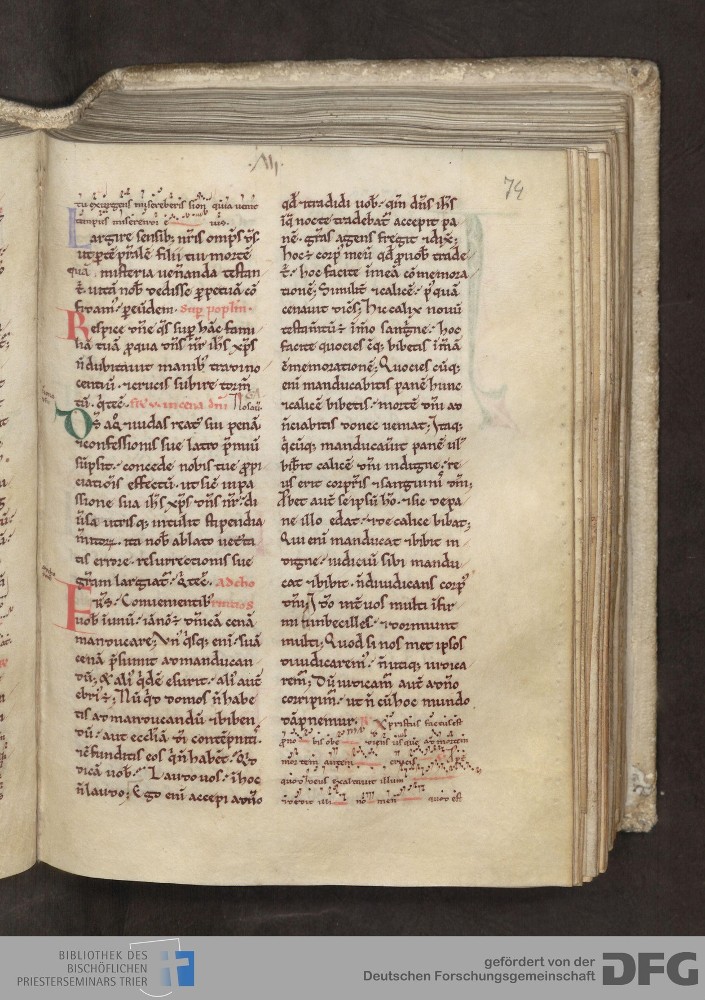 74
tu exurgens misereberis sion quia uenit
tempus miserendi e ius.
Largire sensib; nr̄is omp̄s ds̄.
ut p̄ tē p̄ralē filii tui mortē
quā misteria ueneranda testan
t᷑ uitā nob̄ dedisse p̄petuā cō
fidam᷑. p̄ eundem. Sup̄ popl̄m.
Respice dn̄e qs̄ sup̄ hāc fami
liā tuā p̄ qua dn̄s nr̄ ih̄s xp̄s
n̄ dubitauit manib; tradi no
centiū. et crucis subire torm̄
tū. in cena dn̄i Nos aū.
Ds̄ a q̄ iudas reat᷑ sui penā
et confessionis sue latro p̄miū
sūpsit. concede nobis tue p̄pi
ciationis effectū. ut sic in pa
ssione sua ih̄s xp̄s dn̄s nr̄. di
uersa utrisq; intulit stipendia
ita nob̄ ablato uetus
tis errore. resurrectionis sue
gr̄am largiat᷑. Ad cho
Fr̄s. Conuenientib; rintios
uob̄ in unū. iā nō ē dn̄icā cenā
manducare; Vn᷑ qsq; eni. suā
cenā p̄sumit ad manducan
dū; Et ali᷑ qdē esurit. ali᷑ aut̄
ebri᷑ ē; Nū qd domos n̄ habe
tis ad manducandū et biben
dū. aut eccliā di contēpnitis.
et cfunditis eos q n̄ habēt. Qd
dicā uob̄. Laudo uos. in hoc
n̄ laudo; Ego eni accepi a dn̄o
qd et tradidi uob̄. qm̄ dn̄s ih̄s
in q nocte tradebat᷑ accepit pa
nē. gr̄as agens fregit et dix̄;
hoc ē corp᷑ meū qd p̄ uob̄ trade
t᷑. hoc facite in meā cōmemora
tionē; Similit᷑ et calicē. p᷑ quā
cenauit dicēs; hic calix nouū
testam̄tū ē in meo sangine. hoc
facite quociescūq; bibetis in meā
cmemorationē; Quociescūq;
eni manducabitis panē hunc
et calicē bibetis. mortē dn̄i ad
nūciabitis donec ueniat; Itaq;
qcūq; manducauit panē ul᷑
biberit calicē dn̄i indigne. re
us erit corporis et sanguinis dn̄i;
Probet aut̄ se ipsū hō. et sic de pa
ne illo edat. et de calice bibat;
Qui eni manducat et bibit in
digne. iudiciū sibi mandu
cat et bibit. n̄ diiudicans corp᷑
dn̄i; Ideo int᷑ uos multi infir
mi et inbecilles. et dormiunt
multi; Quod si nos met ipsos
diiudicarem᷑. n̄ utiq; iudica
rem᷑; Dū iudicam᷑ aut̄ a dn̄o
corripim᷑. ut n̄ cū hoc mundo
dāpnemur. R. Xpristus factus est
pro no bis obe diens usque ad mortem
mortem autem crucis
quod deus exaltauit illum
et dedit illi no men quod est
BIBLIOTHEK DES
BISCHÖFLICHEN
PRIESTERSEMINARS TRIER
gefördert von der
Deutschen Forschungsgemeinschaft
DFG